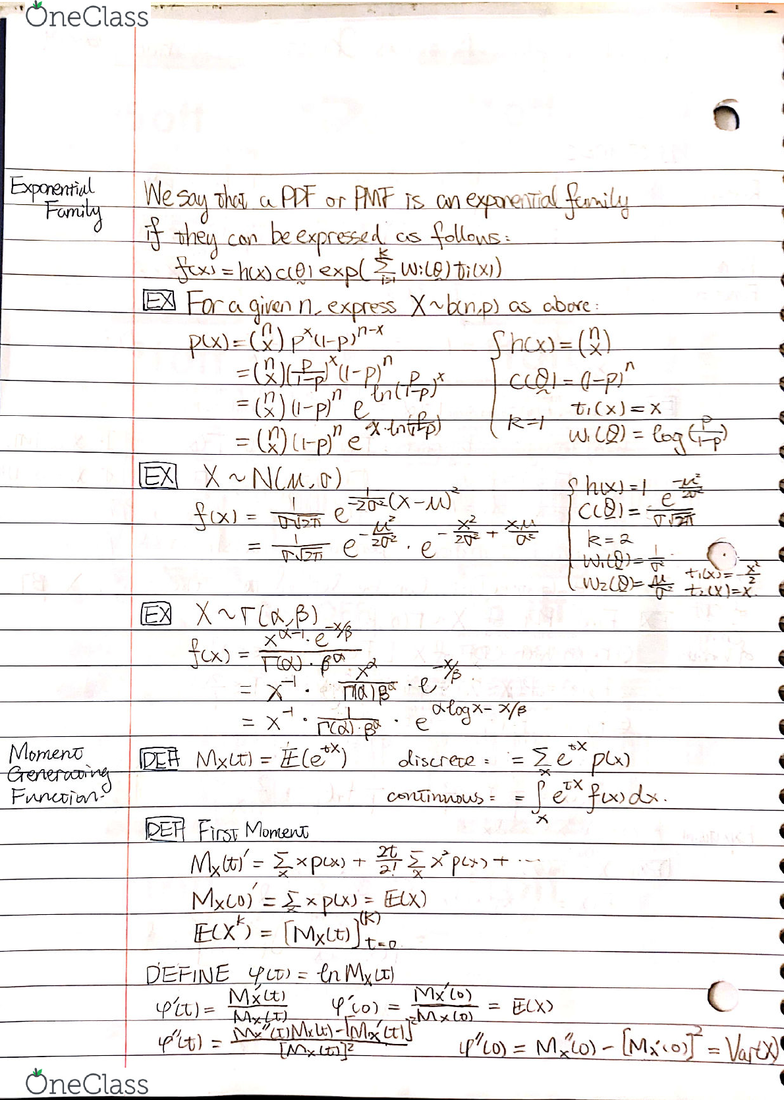 OneClass
Exponential Family
We say that a PDF or PMF is an exponential family
if they can be expressed as follows:
f(x) = h(x) c(θ) exp( Σ_{i=1}^{k} wi(θ) ti(x))
EX For a given n, express X ~ b(n,p) as above:
p(x) = (n x) p^x (1-p)^{n-x}
= (n x) (p/(1-p))^x (1-p)^n
= (n x) (1-p)^n e^{ln(p/(1-p))^x}
= (n x) (1-p)^n e^{x·ln(p/(1-p))}
{ h(x) = (n x)
c(θ) = (1-p)^n
k=1
t1(x) = x
w1(θ) = log(p/(1-p))
EX X ~ N(μ, σ)
f(x) = 1/(σ√2π) e^{1/(-2σ²) (x-μ)²}
= 1/(σ√2π) e^{-μ²/2σ²} · e^{-x²/2σ² + xμ/σ²}
{ h(x) = 1
c(θ) = e^{-μ²/2σ²}/(σ√2π)
k = 2
w1(θ) = 1/σ² t1(x) = -x²/2
w2(θ) = μ/σ² t2(x) = x.
EX X ~ Γ(α, β)
f(x) = (x^{α-1} · e^{-x/β})/(Γ(α) · β^α)
= x^{-1} · x^α/(Γ(α) β^α) e^{-x/β}
= x^{-1} · 1/(Γ(α)·β^α) · e^{αlogx - x/β}
Moment Generating Function.
DEF Mx(t) = E(e^{tX}) discrete: = Σ_x e^{tX} p(x)
continuous: = ∫_x e^{tX} f(x) dx.
DEF First Moment
Mx(t)' = Σ_x x p(x) + 2t/2! Σ_x x² p(x) + ...
Mx(0)' = Σ_x x p(x) = E(X)
E(X^k) = [Mx(t)]^{(k)}_{t=0}
DEFINE φ(t) = ln Mx(t)
φ'(t) = Mx'(t)/Mx(t) φ'(0) = Mx'(0)/Mx(0) = E(X)
φ''(t) = (Mx''(t)Mx(t) - [Mx'(t)]²)/[Mx(t)]² φ''(0) = Mx''(0) - [Mx'(0)]² = Var(X)
OneClass